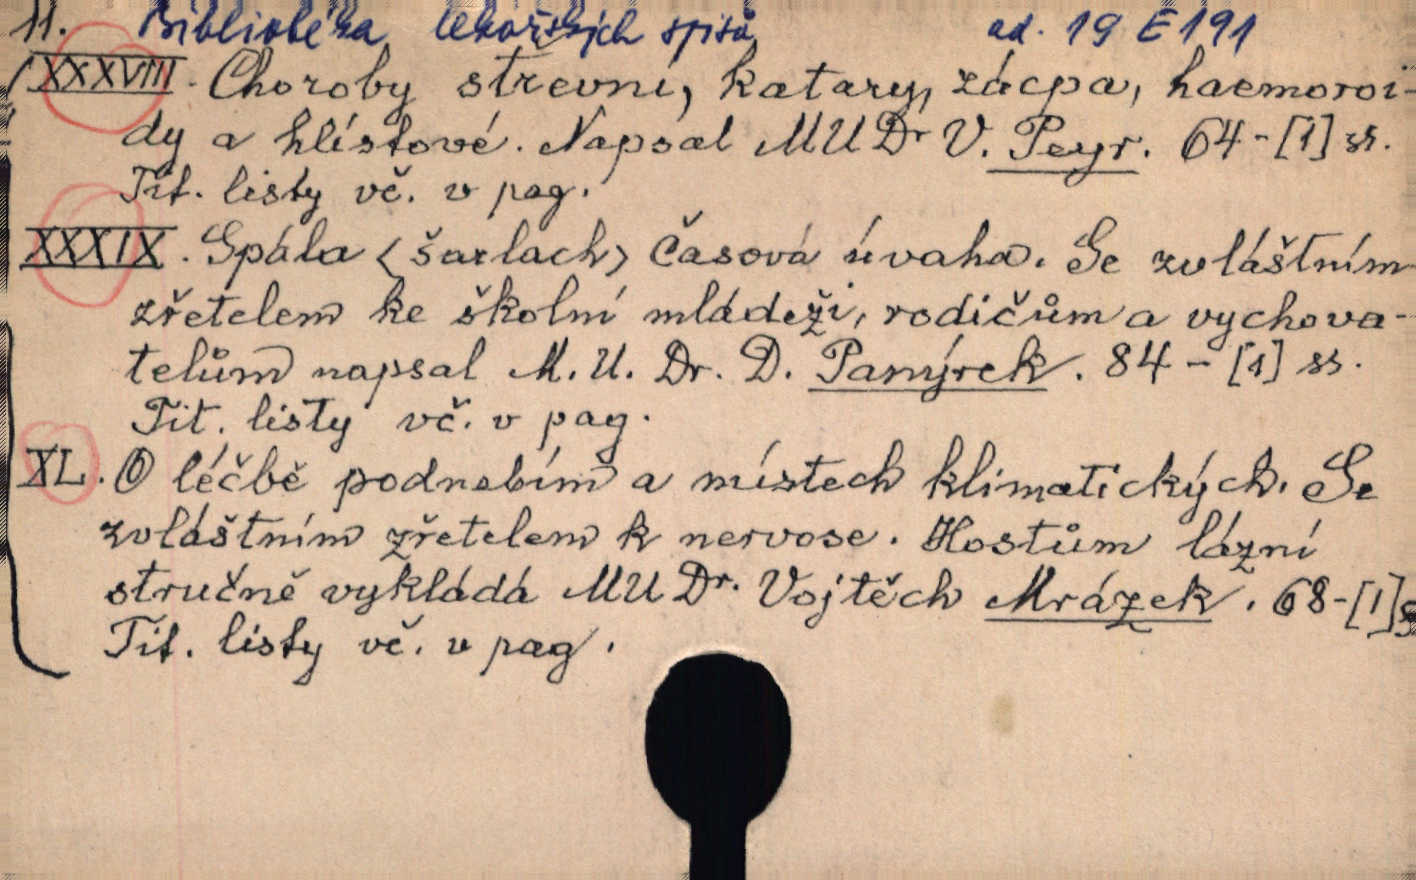 11. Bibliotéka lékařských spisů ad. 19 E 191
XXXVIII. Choroby střevní, katary, zácpa, haemoroi-
dy a hlístové. Napsal MUDr V. Peyr. 64-[1] ss.
Tit. listy vč. v pag.
XXXIX. Spála <šarlach> Časová úvaha. Se zvláštním
zřetelem ke školní mládeži, rodičům a vychova-
telům napsal M. U. Dr. D. Panýrek. 84-[1] ss.
Tit. listy vč. v pag.
XL. O léčbě podnebím a místech klimatických. Se
zvláštním zřetelem k nervose. Hostům lázní
stručně vykládá MUDr. Vojtěch Mrázek. 68-[1] s
Tit. listy vč. v pag.